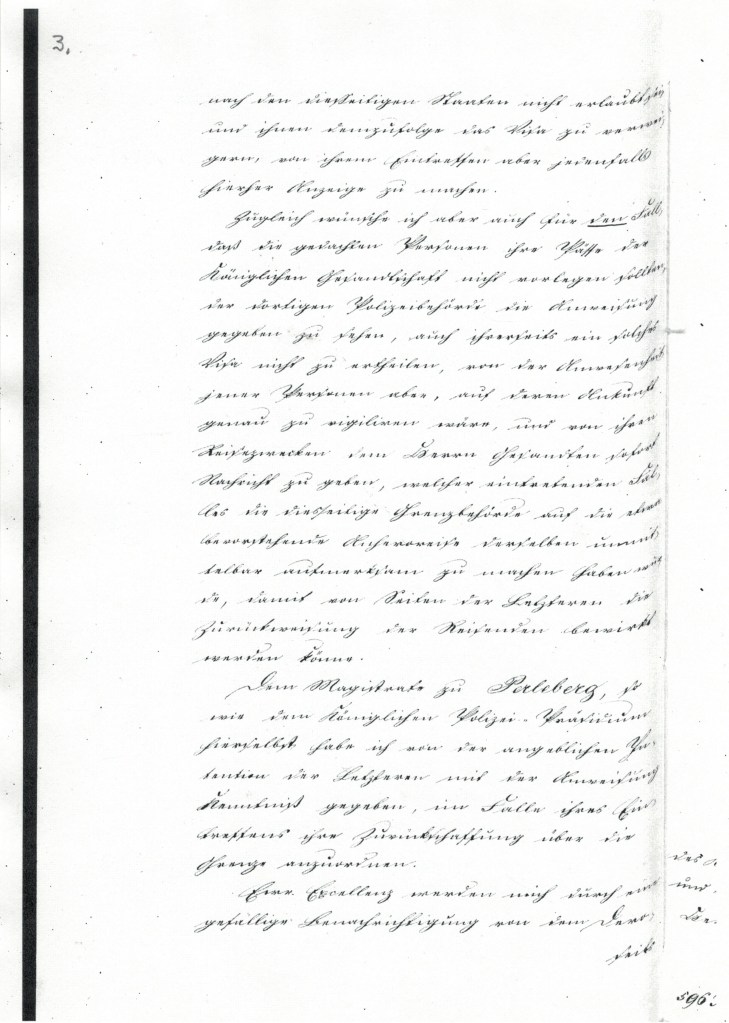 3.
nach den diesseitigen Staaten nicht erlaubt sei
und ihnen demzufolge das Visa zu verwei,
gern, von ihrem Eintreffen aber jedenfalls
hierher Anzeige zu machen.
Zugleich wünsche ich aber auch für den Fall,
daß die gedachten Personen ihre Pässe der
Königlichen Gesandtschaft nicht vorlegen sollten,
der dortigen Polizeibehörde die Anweisung
gegeben zu sehen, auch ihrerseits ein solches
Visa nicht zu ertheilen, von der Anwesenheit
jener Personen aber, auf deren Ankunft
genau zu vigiliren wäre, und von ihren
Reisezwecken dem Herrn Gesandten sofort
Nachricht zu geben, welcher eintretenden Fal,
les die diesseitige Grenzbehörde auf die etwa
bevorstehende Anheroreise derselben unmit,
telbar aufmerksam zu machen haben wür
de, damit von Seiten der Letzteren die
Zurückweisung der Reisenden bewirkt
werden könne.
Dem Magistrate zu Perleberg, so
wie dem Königlichen Polizei-Präsidium
hierselbst habe ich von der angeblichen In-
tention der Letzteren mit der Anweisung
Kenntniß gegeben, im Falle ihres Ein
treffens ihre Zurückschaffung über die
Grenze anzuordnen.
Ewr. Excellenz werden mich durch eine
gefällige Benachrichtigung von dem Dero,
seits
des
und
596